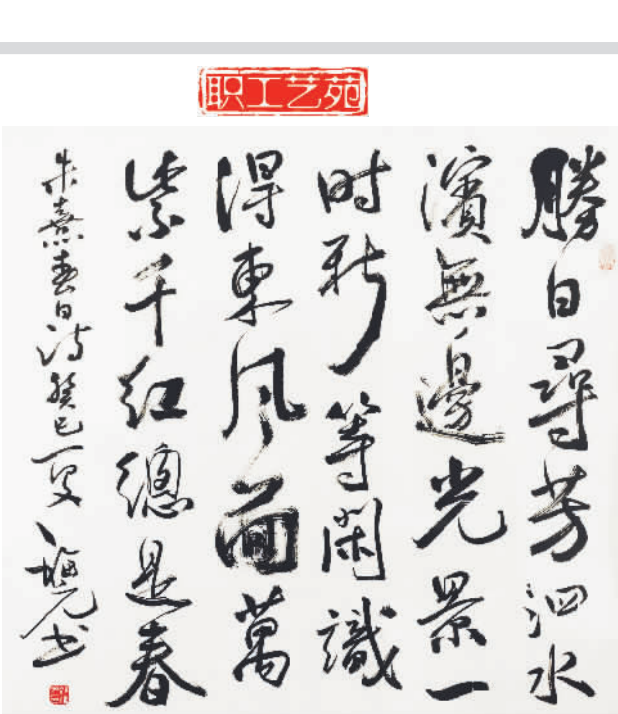 职工艺苑
勝日尋芳泗水
濱無邊光景一
时新等閑識
得東风面萬
紫千红總是春
朱熹春日诗癸巳夏
元书